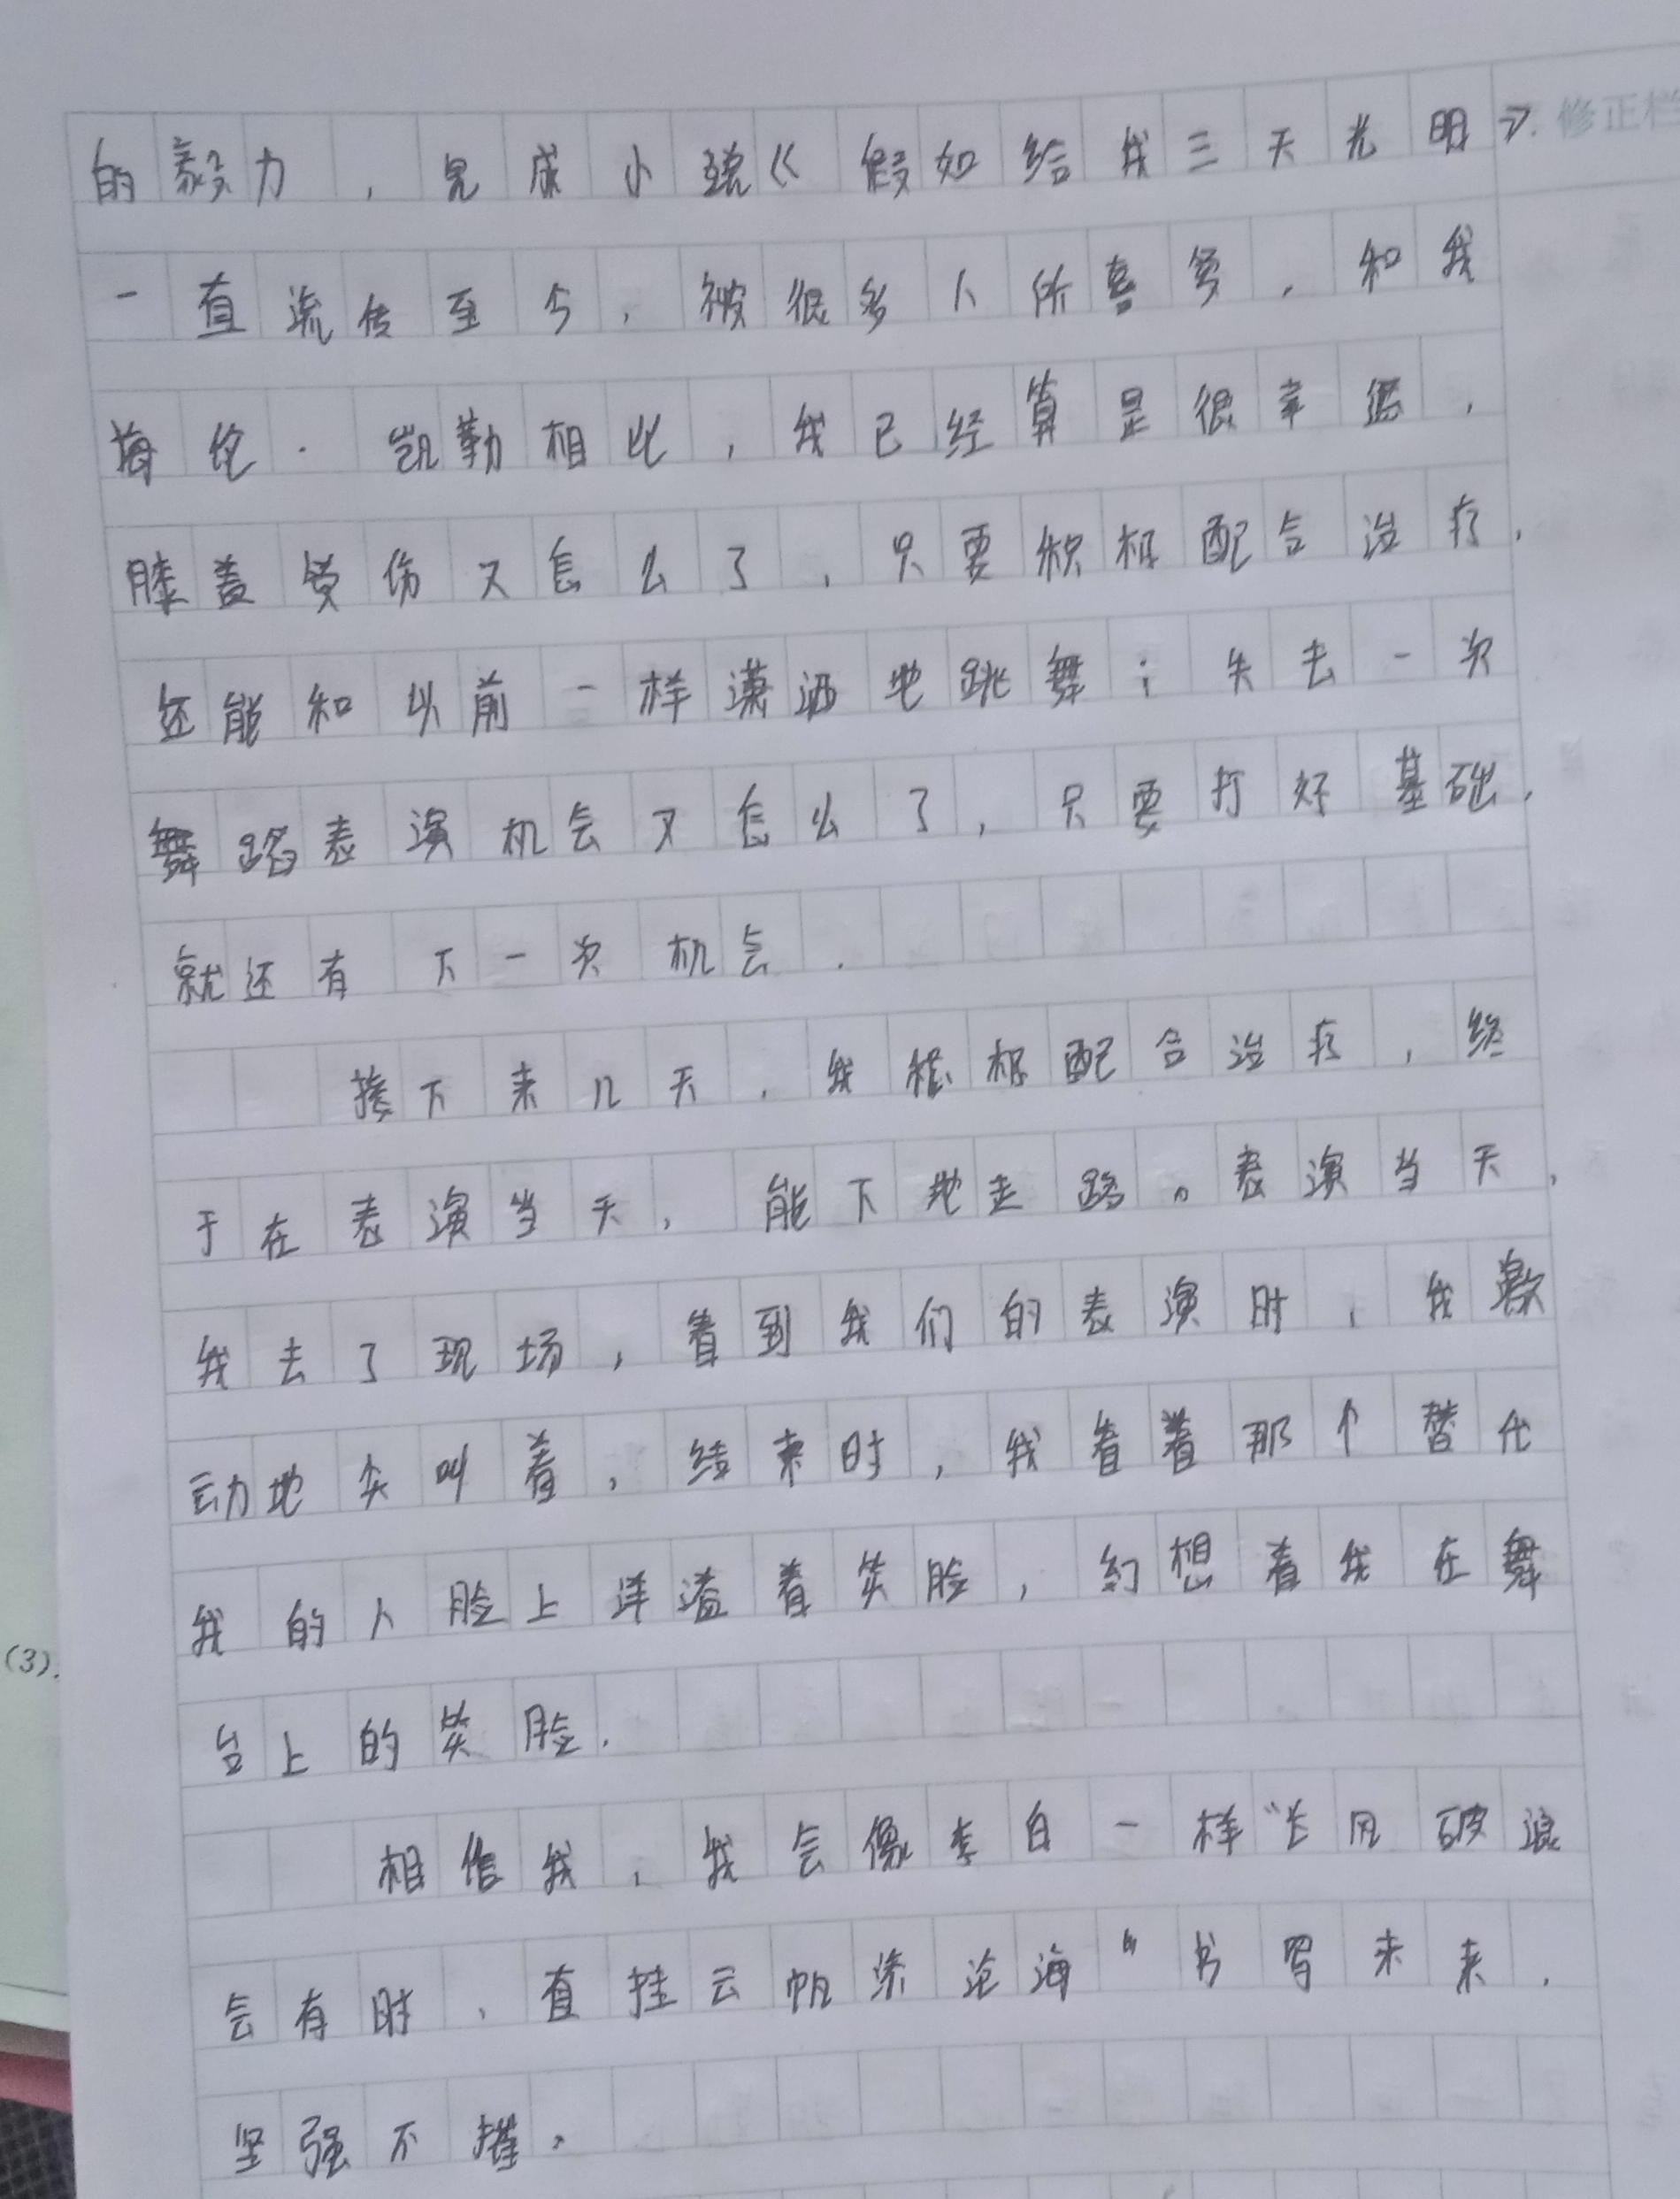 的毅力，完成小说《假如给我三天光明》. 修正栏
一直流传至今，被很多人所喜爱，和我
海伦·凯勒相比，我已经算是很幸运，
膝盖受伤又怎么了，只要积极配合治疗，
还能和以前一样潇洒地跳舞；失去一次
舞蹈表演机会又怎么了，只要打好基础，
就还有下一次机会.
接下来几天，我积极配合治疗，终
于在表演当天，能下地走路。表演当天，
我去了现场，看到我们的表演时，我激
动地尖叫着，结束时，我看着那个替代
我的人脸上洋溢着笑脸，幻想着我在舞
台上的笑脸.
相信我，我会像李白一样“长风破浪
会有时，直挂云帆济沧海”书写未来，
坚强不摧。
(3).